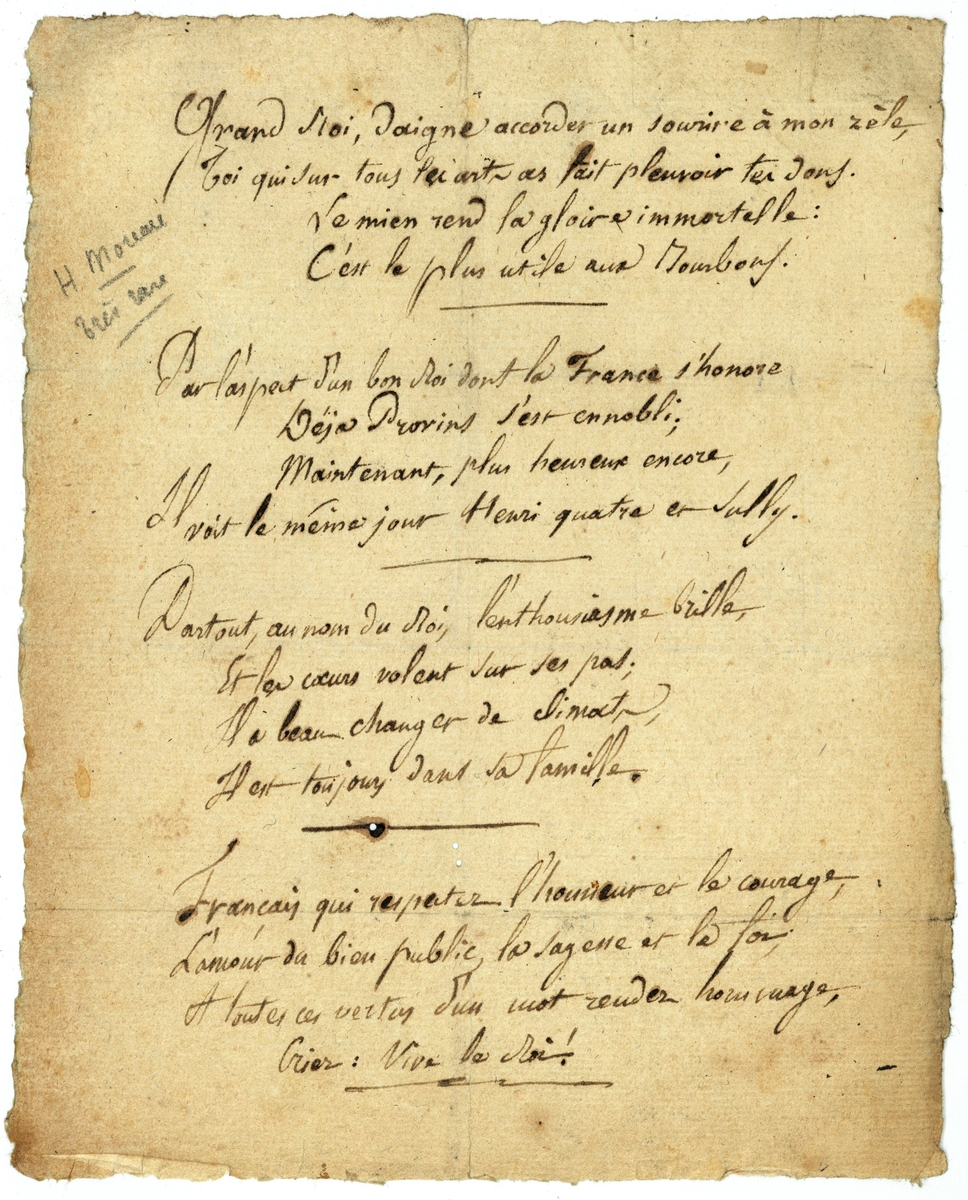 Grand Roi, daigne accorder un sourire à mon zèle,
Toi qui sur tous les arts as fait pleuvoir tes dons.
Le mien rend la gloire immortelle :
C'est le plus utile aux Bourbons.
H Moreau
très rare
Par l'aspect d'un bon Roi dont la France s'honore
Déja Provins s'est ennobli;
Maintenant, plus heureux encore,
Il voit le même jour Henri quatre et Sully.
Partout, au nom du Roi, l'enthousiasme brille,
Et les cœurs volent sur ses pas;
Il a beau changer de climats,
Il est toujours dans sa famille.
Français qui respectez l'honneur et le courage,
L'amour du bien public, la sagesse et la foi;
A toutes ces vertus d'un mot rendez hommage,
Criez : Vive le Roi!